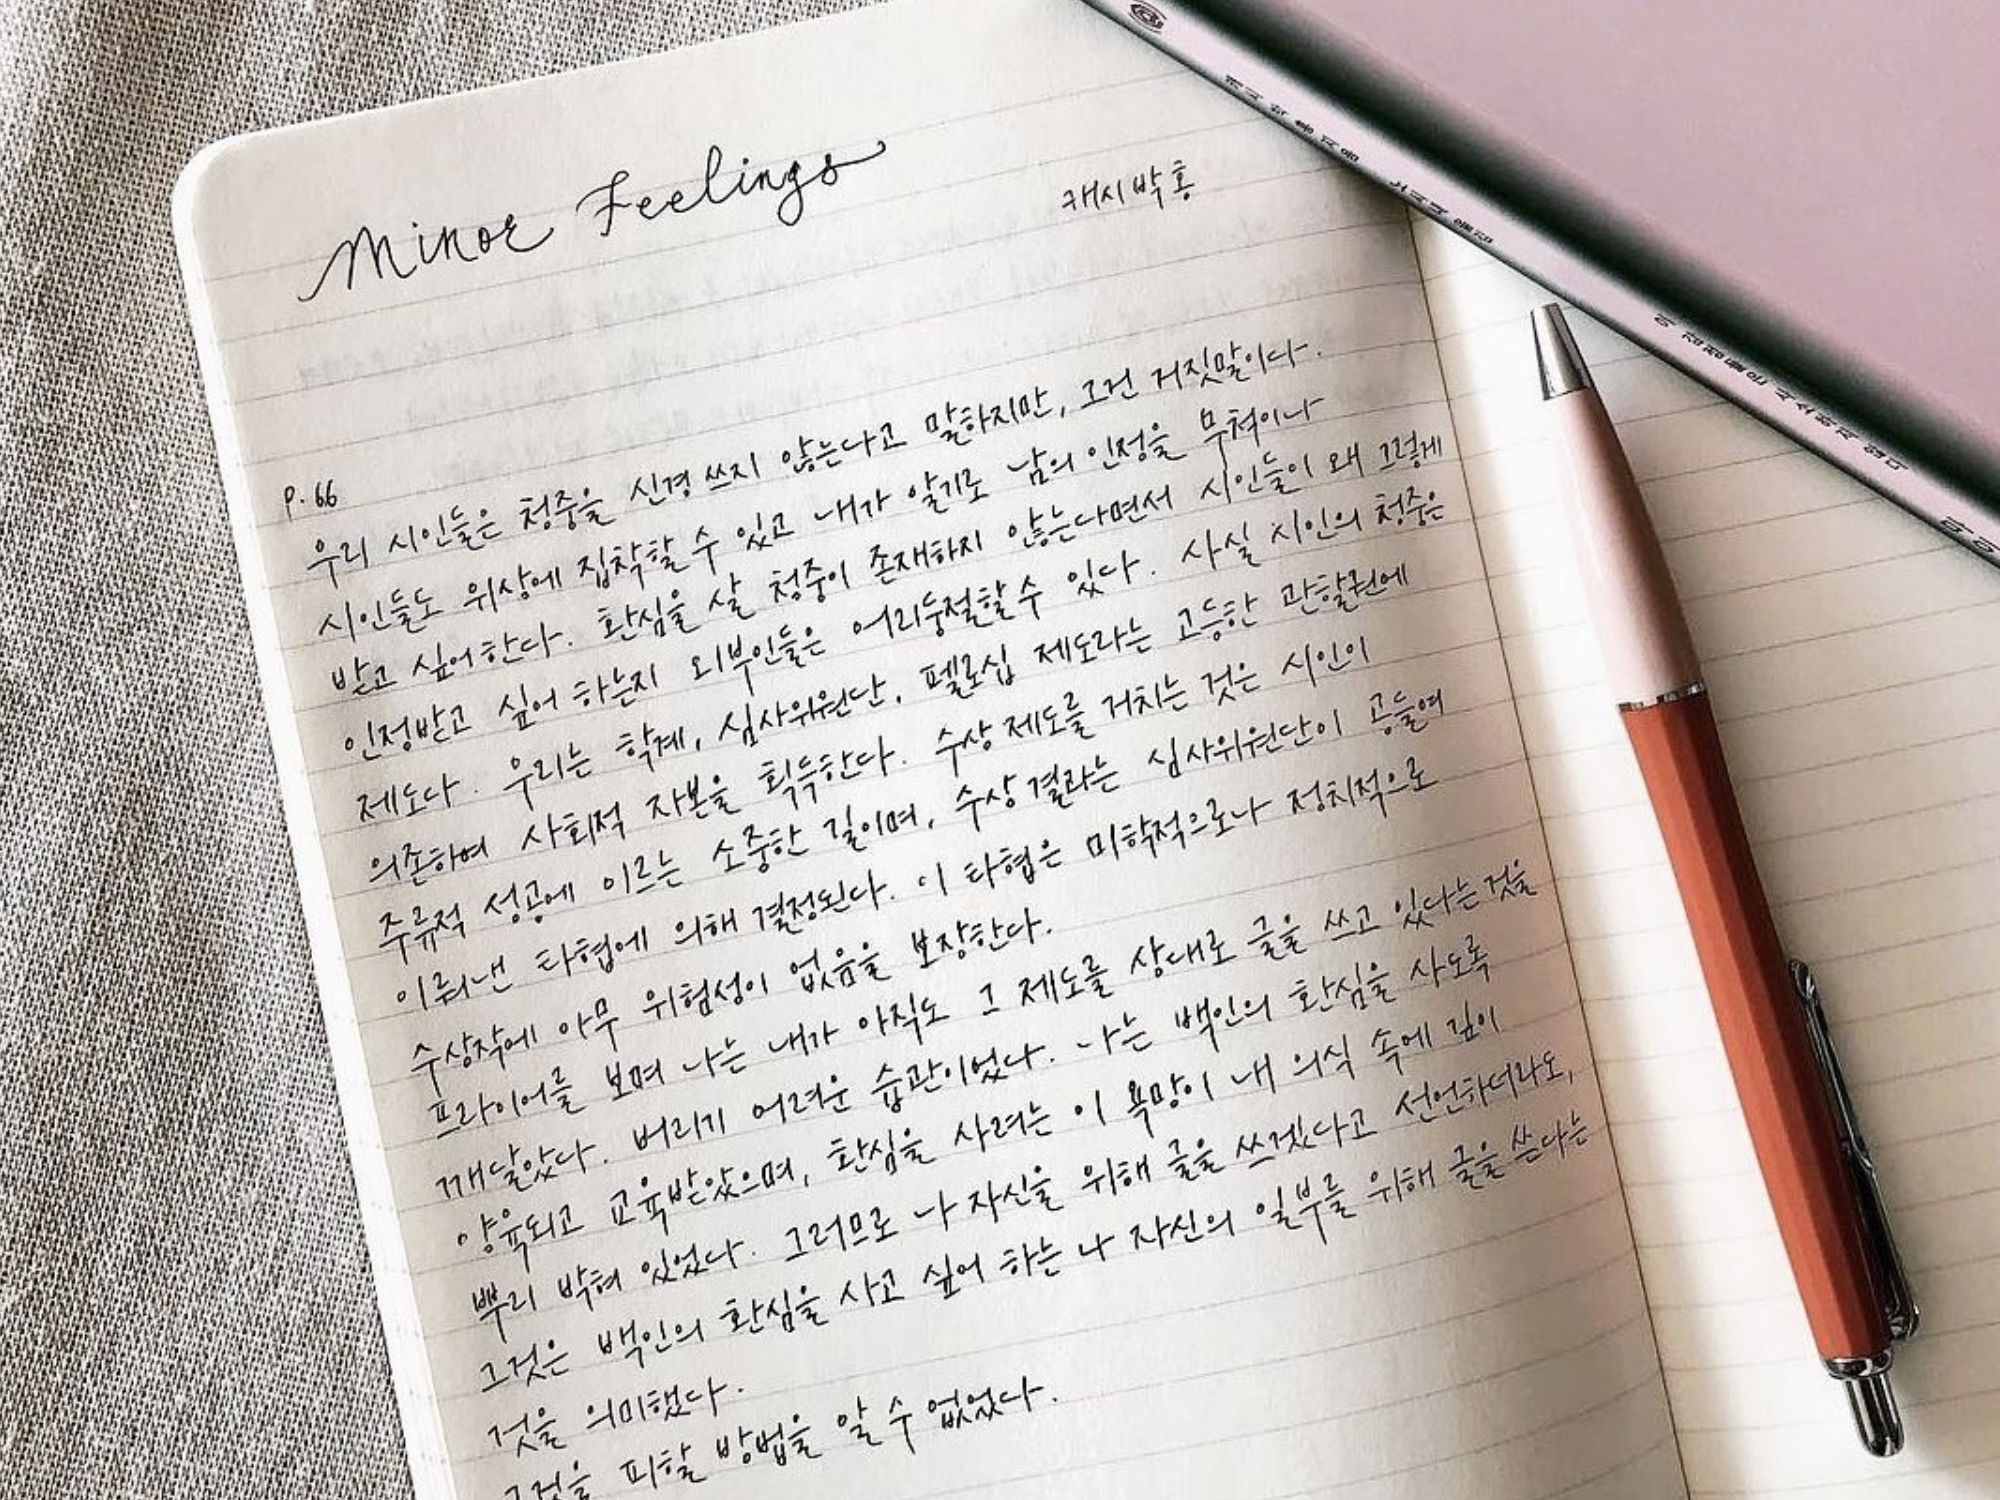 Minor Feelings
캐시 박 홍
p. 66
우리 시인들은 청중을 신경 쓰지 않는다고 말하지만, 그건 거짓말이다.
시인들도 위상에 집착할 수 있고 내가 알기로 남의 인정을 무척이나
받고 싶어 한다. 환심을 살 청중이 존재하지 않는다면서 시인들이 왜 그렇게
인정받고 싶어 하는지 외부인들은 어리둥절할 수 있다. 사실 시인의 청중은
제도다. 우리는 학계, 심사위원단, 펠로십 제도라는 고등한 관할권에
의존하여 사회적 자본을 획득한다. 수상 제도를 거치는 것은 시인이
주류적 성공에 이르는 소중한 길이며, 수상 결과는 심사위원단이 공들여
이뤄낸 타협에 의해 결정된다. 이 타협은 미학적으로나 정치적으로
수상작에 아무 위험성이 없음을 보장한다.
프라이어를 보며 나는 내가 아직도 그 제도를 상대로 글을 쓰고 있다는 것을
깨달았다. 버리기 어려운 습관이었다. 나는 백인의 환심을 사도록
양육되고 교육받았으며, 환심을 사려는 이 욕망이 내 의식 속에 깊이
뿌리 박혀 있었다. 그러므로 나 자신을 위해 글을 쓰겠다고 선언하더라도,
그것은 백인의 환심을 사고 싶어 하는 나 자신의 일부를 위해 글을 쓴다는
것을 의미했다.
그것을 피할 방법을 알 수 없었다.